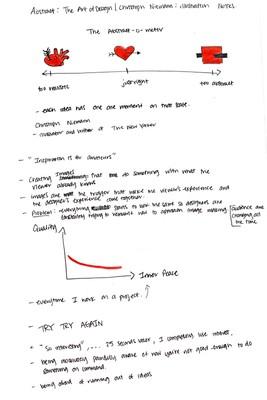 Abstract: The Art of Design | Christoph Niemann: Illustration Notes.
The Abstract-o-meter
too realistic just right too abstract
- each idea has one moment on that scale.
Christoph Niemann
- illustrator and writer at The New Yorker
- "Inspiration is for amateurs"
- Creating images that do something with what the
viewer already knows
- images are the trigger that the viewer's experience and
the designer's experience come together.
- Problem: everything starts to look the same so designers are
constantly trying to reinvent how to approach image making
audience are
changing all
the time
Quality
Inner Peace
- everytime I work on a project.
- TRY TRY AGAIN
- "so interesting", ... 25 seconds later, I
- being absolutely painfully aware of how you're not good enough to do
something on command.
- being afraid of running out of ideas